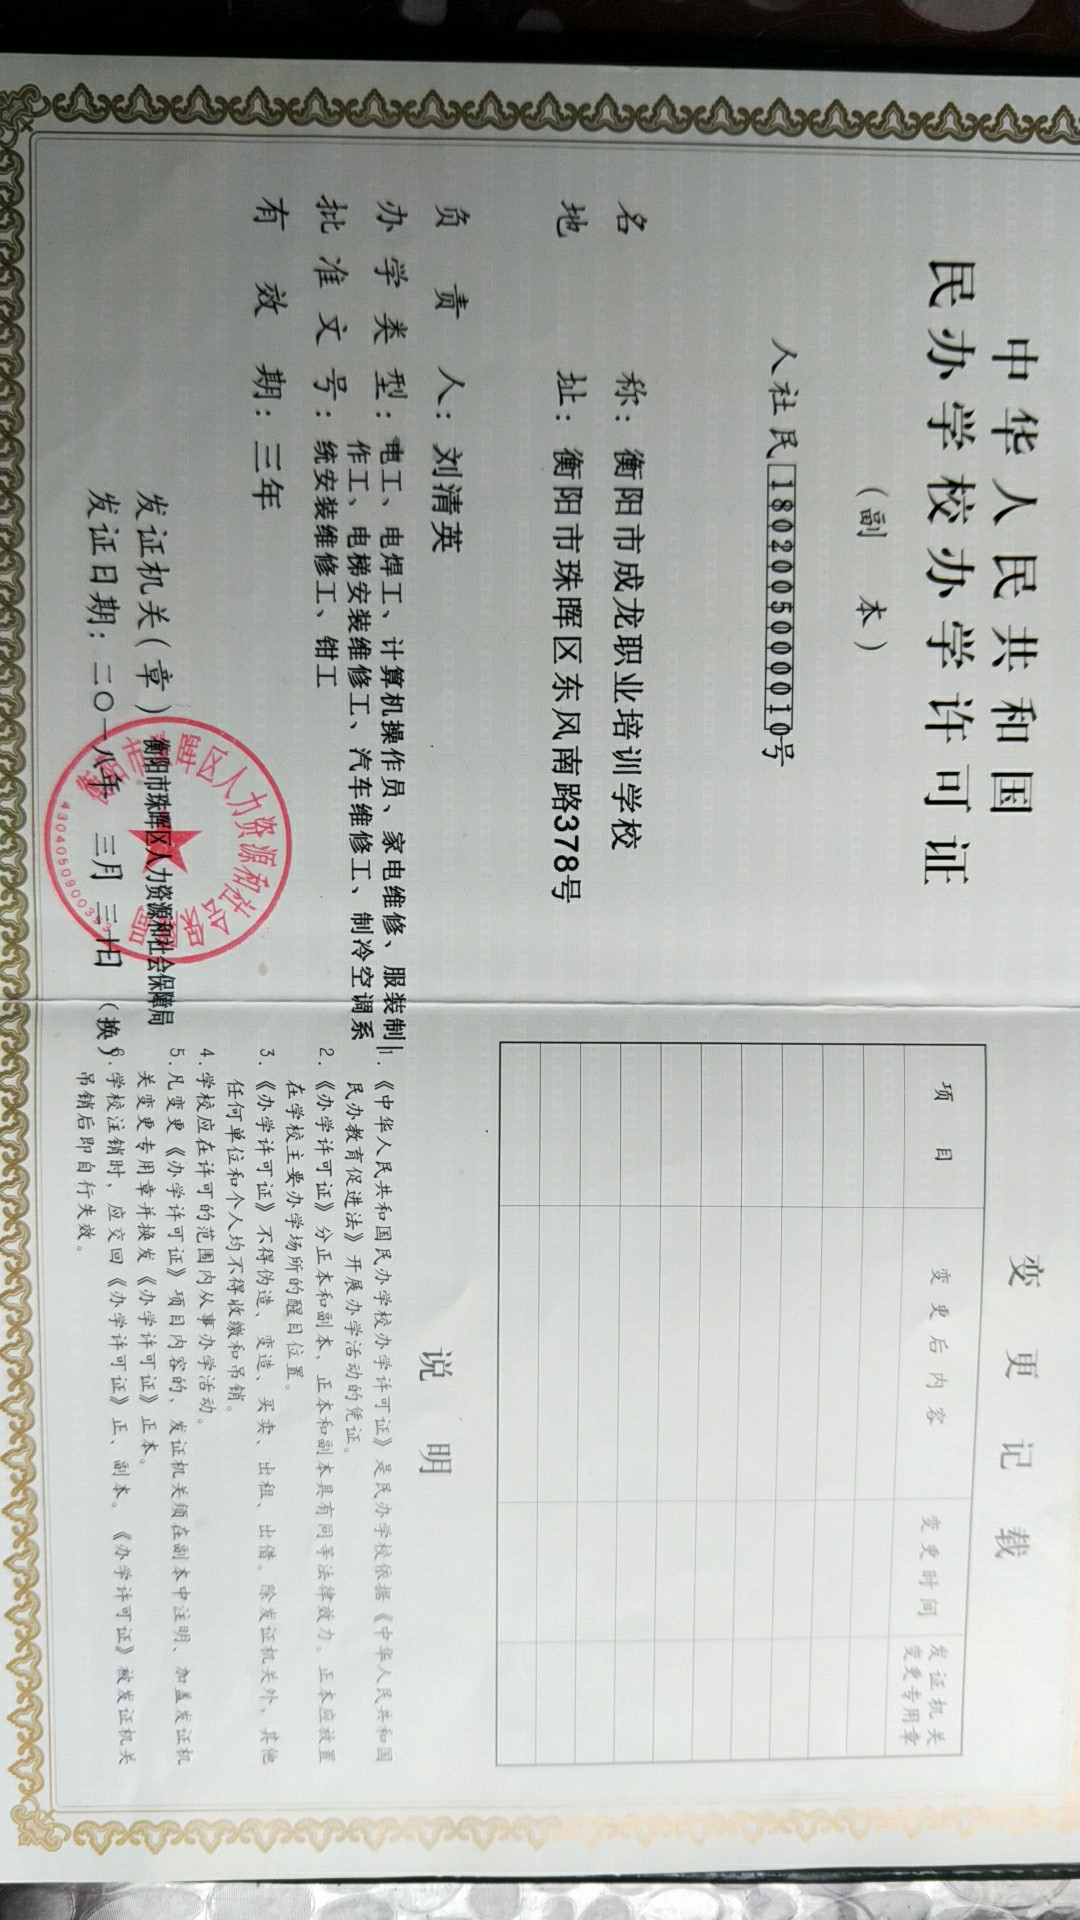 中华人民共和国
民办学校办学许可证
（副 本）
人社民1802005000010号
名 称：衡阳市成龙职业培训学校
地 址：衡阳市珠晖区东风南路378号
负 责 人：刘清英
办 学 类 型：电工、电焊工、计算机操作员、家电维修、服装制
作工、电梯安装维修工、汽车维修工、制冷空调系
统安装维修工、钳工
批 准 文 号：
有 效 期：三年
发证机关（章）
衡阳市珠晖区人力资源和社会保障局
发证日期：二〇一八年 三月 三十日（换）
变 更 记 载
项 目
变 更 后 内 容
变 更 时 间
发 证 机 关
变更专用章
说 明
1.《中华人民共和国民办学校办学许可证》是民办学校依据《中华人民共和国
民办教育促进法》开展办学活动的凭证。
2.《办学许可证》分正本和副本，正本和副本具有同等法律效力。正本应放置
在学校主要办学场所的醒目位置。
3.《办学许可证》不得伪造、变造、买卖、出租、出借。除发证机关外，其他
任何单位和个人均不得收缴和吊销。
4.学校应在许可的范围内从事办学活动。
5.凡变更《办学许可证》项目内容的，发证机关须在副本中注明、加盖发证机
关变更专用章并换发《办学许可证》正本。
6.学校注销时，应交回《办学许可证》正、副本。《办学许可证》被发证机关
吊销后即自行失效。